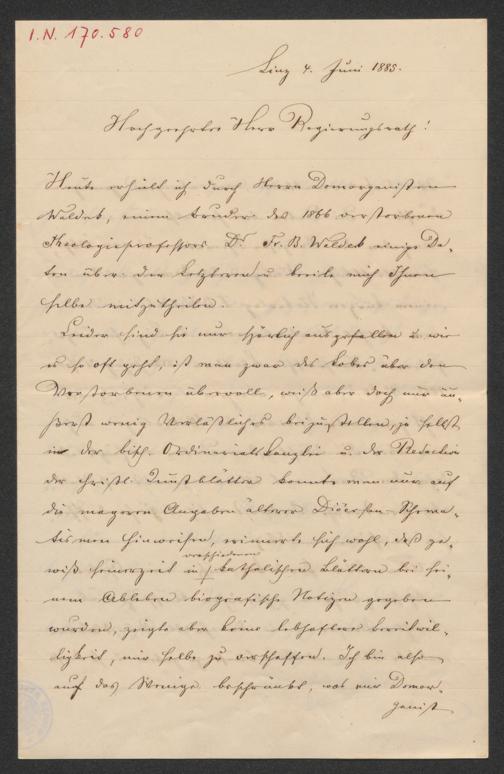 I.N. 170.580
Linz 4. Juni 1885.
Hochgeehrter Herr Regierungsrath!
Heute erhielt ich durch Herrn Domorganisten
Waldek, einem Bruder des 1866 verstorbenen
Theologieprofessors Dr. Fr. B. Waldek einige Da-
ten über den Letzteren u beeile mich Ihnen
selbe mitzutheilen.
Leider sind sie nur spärlich ausgefallen u. wie
es so oft geht, ist man zwar des Lobes über den
Verstorbenen übervoll, weiß aber doch nur äu-
ßerst wenig Verläßliches beizustellen, ja selbst
in der bisch. Ordinariatskanzlei u. der Redaction
der christl. Kunstblätter konnte man nur auf
die mageren Angaben älterer Diöcesan-Schema-
tismen hinweisen, erinnerte sich wohl, daß ge-
wiß seinerzeit in verschiedenen katholischen Blättern bei sei-
nem Ableben biografische Notizen gegeben
wurden, zeigte aber keine lebhaftere Bereitwil-
ligkeit, mir selbe zu verschaffen. Ich bin also
auf das Wenige beschränkt, was mir Domor-
ganist